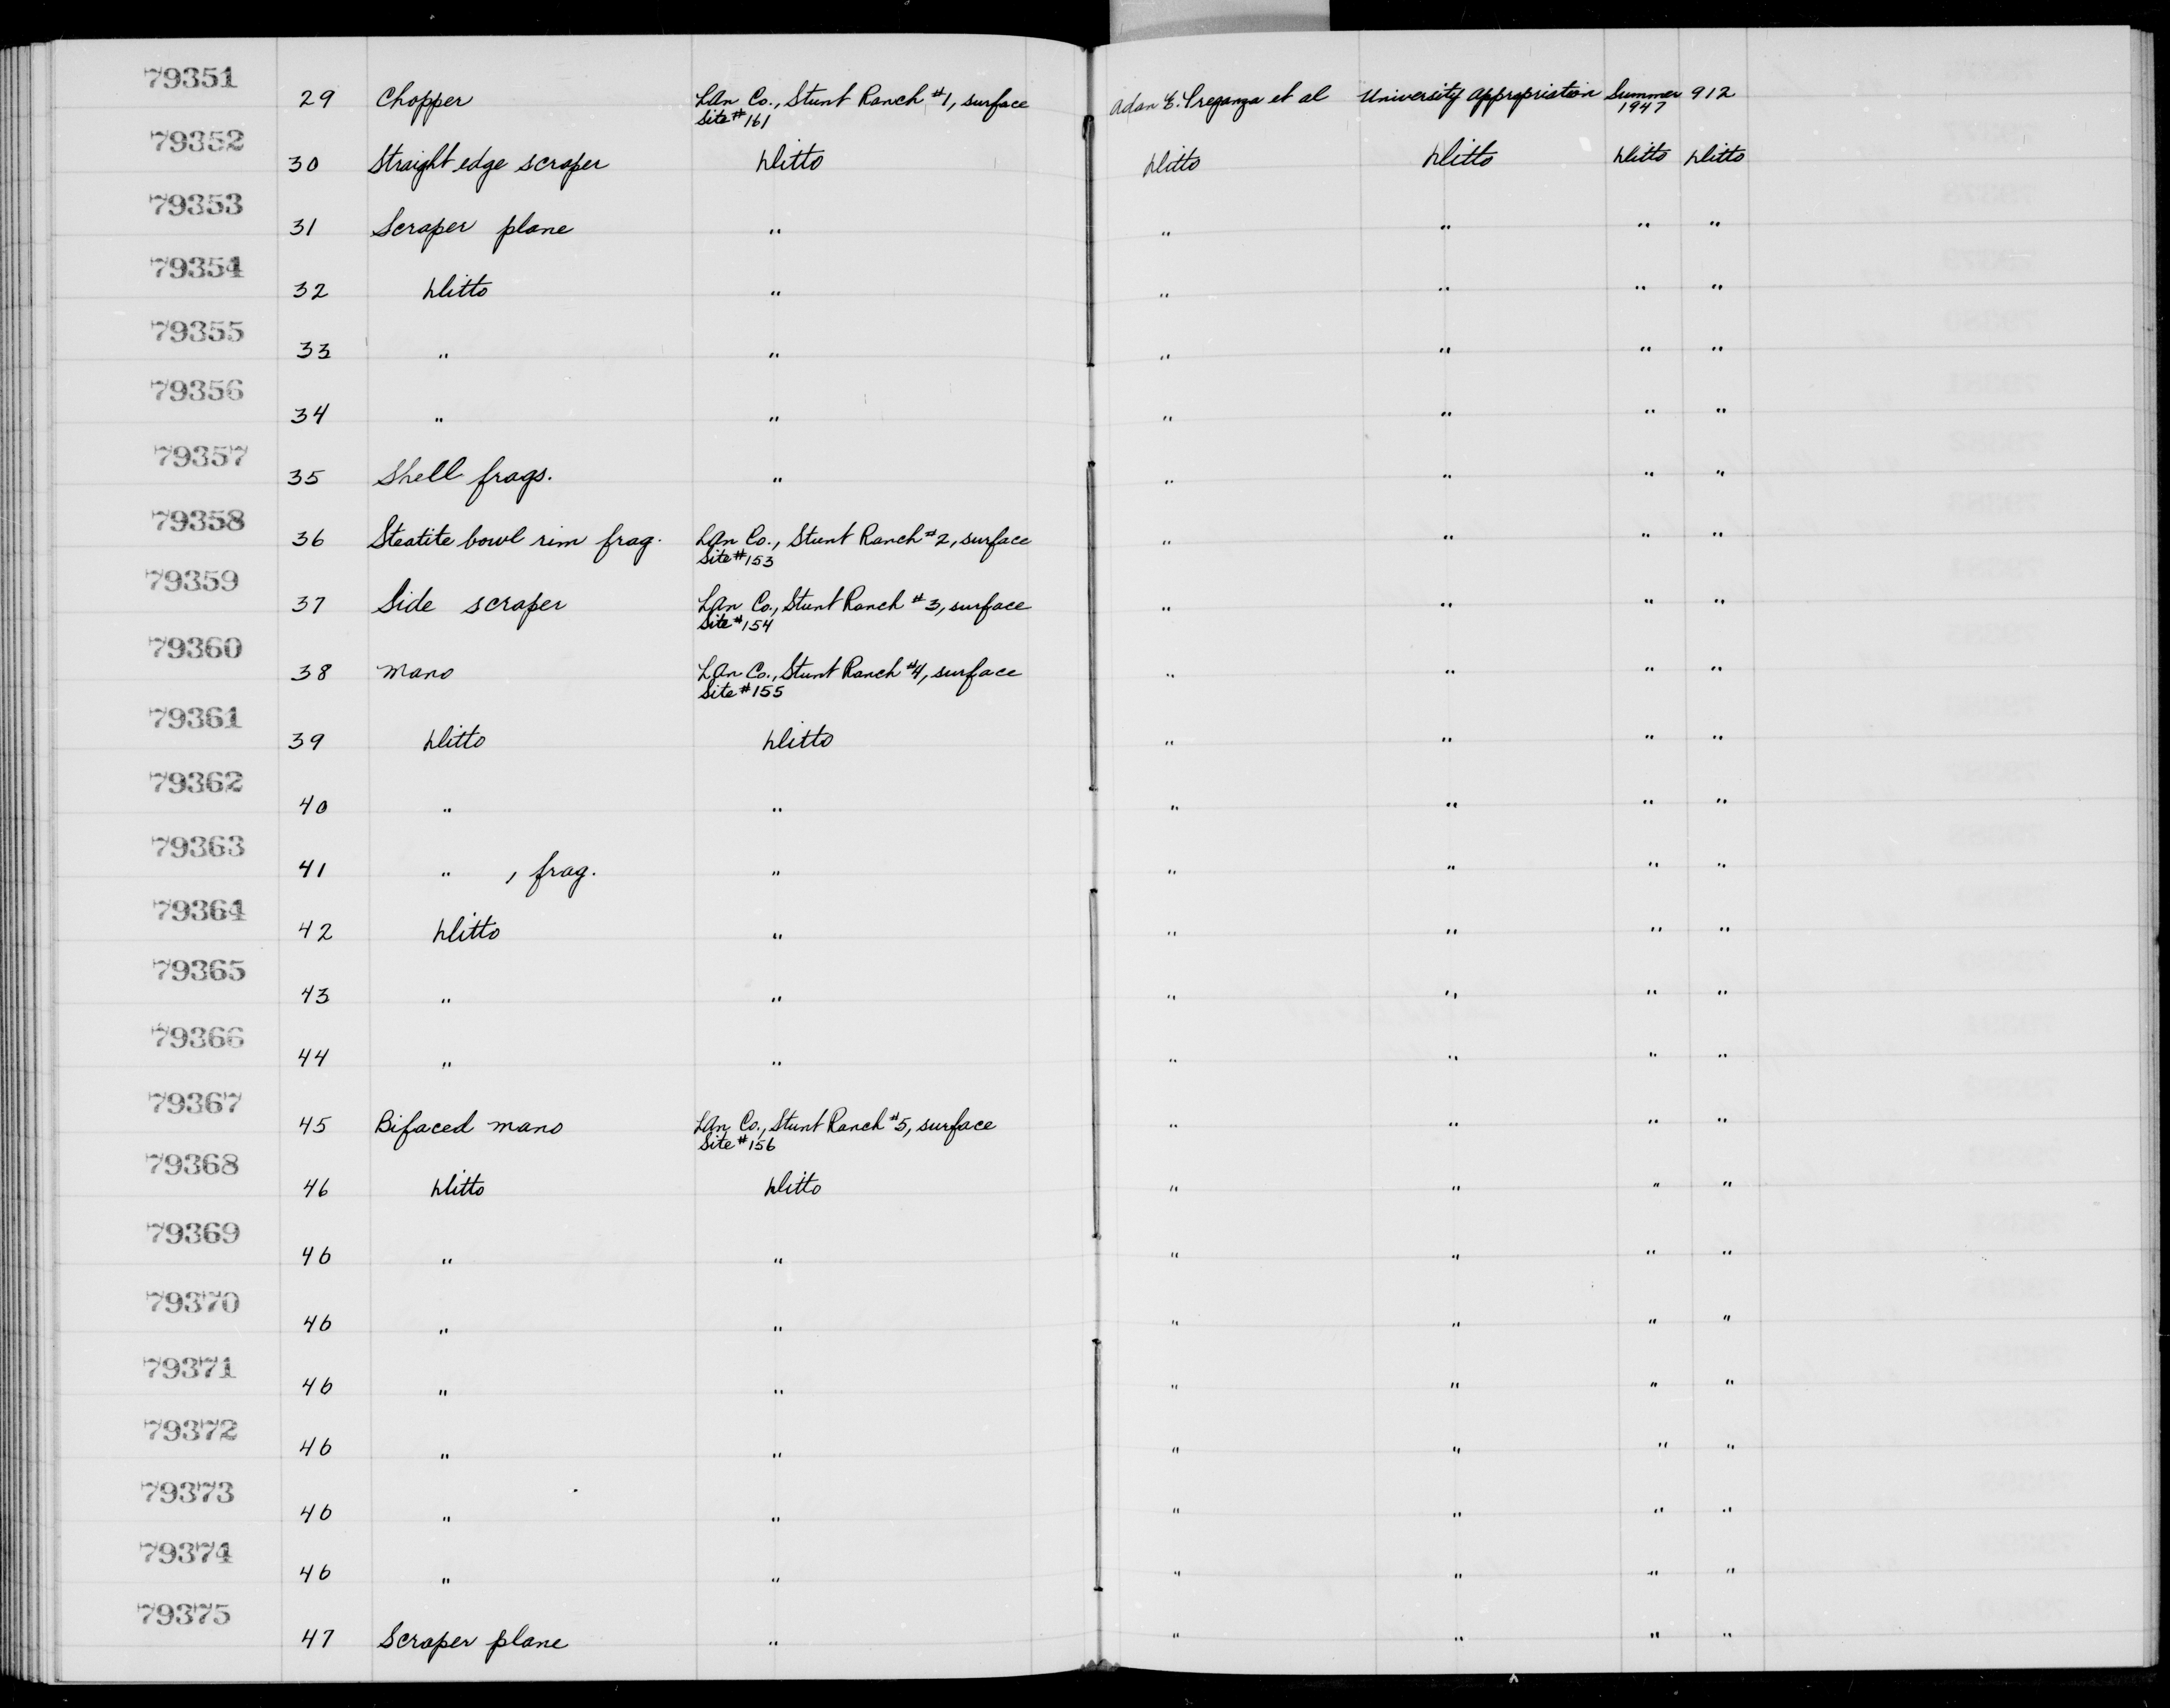 79351 29 Chopper LAn Co., Stunt Ranch #1, surface Adan E. Treganza et al University Appropriation Summer 912
Site #161 1947
79352 30 Straight edge scraper Ditto Ditto Ditto Ditto Ditto
79353 31 Scraper plane " " " " "
79354 32 Ditto " " " " "
79355 33 " " " " " "
79356 34 " " " " " "
79357 35 Shell frags. " " " " "
79358 36 Steatite bowl rim frag. LAn Co., Stunt Ranch #2, surface " " " "
Site #153
79359 37 Side scraper LAn Co., Stunt Ranch #3, surface " " " "
Site #154
79360 38 Mano LAn Co., Stunt Ranch #4, surface " " " "
Site #155
79361 39 Ditto Ditto " " " "
79362 40 " " " " " "
79363 41 " , frag. " " " " "
79364 42 Ditto " " " " "
79365 43 " " " " " "
79366 44 " " " " " "
79367 45 Bifaced mano LAn Co., Stunt Ranch #5, surface " " " "
Site #156
79368 46 Ditto Ditto " " " "
79369 46 " " " " " "
79370 46 " " " " " "
79371 46 " " " " " "
79372 46 " " " " " "
79373 46 " " " " " "
79374 46 " " " " " "
79375 47 Scraper plane " " " " "